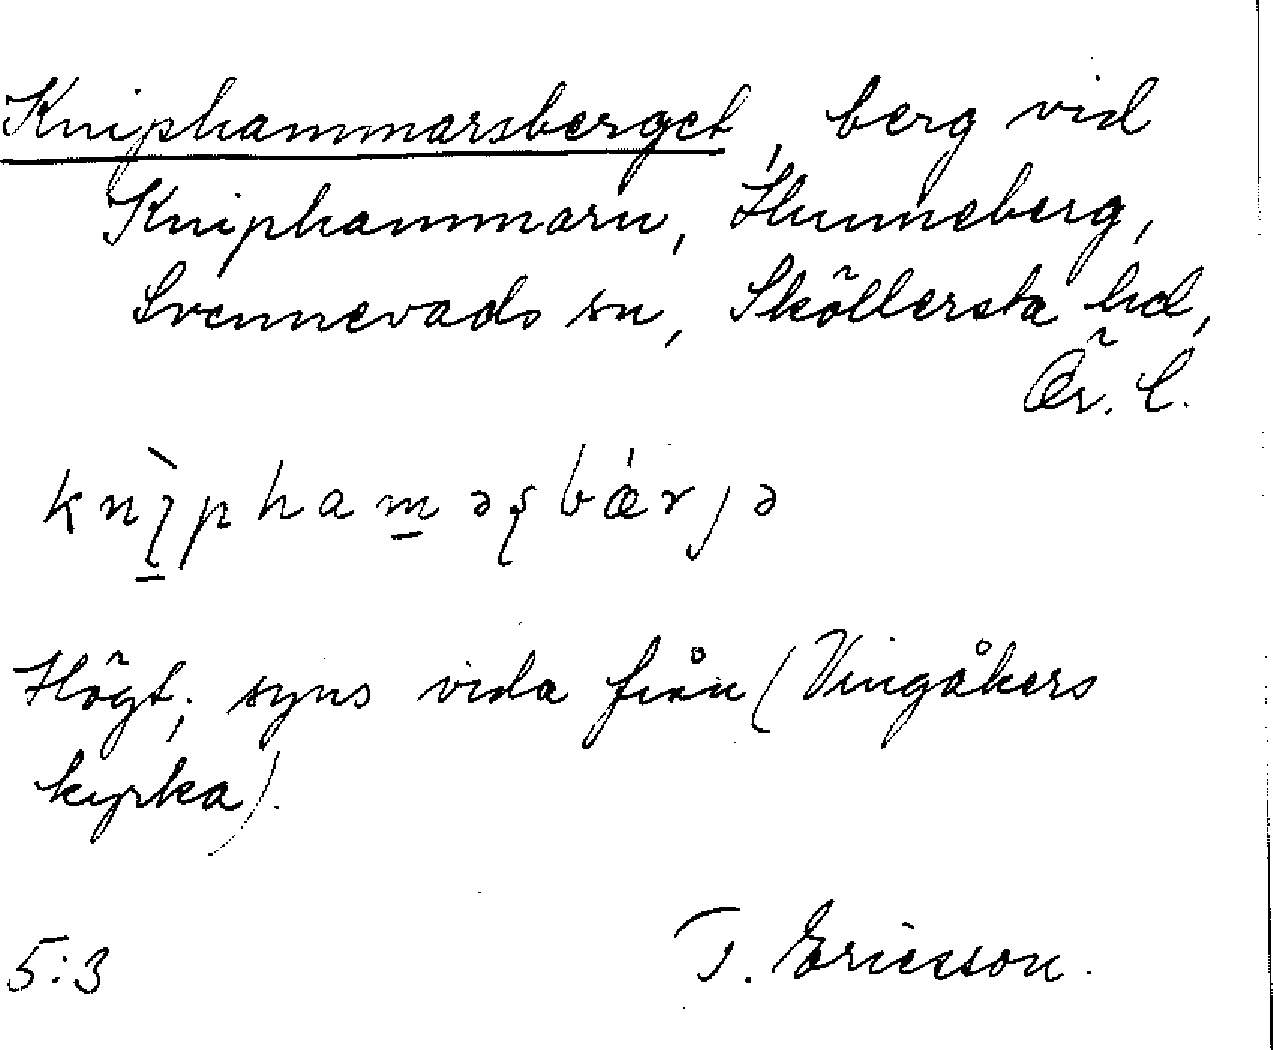 Kniphammarsberget, berg vid
Kniphammarn, Hunneberg,
Svennevads sn, Sköllersta hd,
Ör. l.
Högt; syns vida från (Vingåkers
kyrka).
5:3
T. Ericsson.